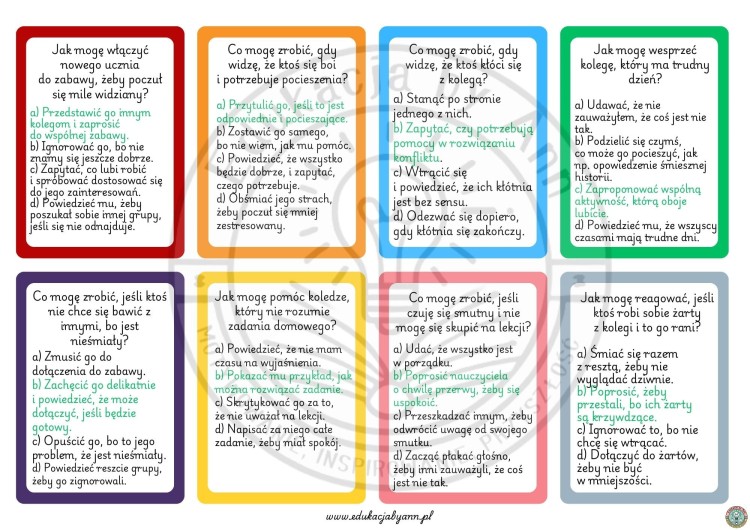 Jak mogę włączyć
nowego ucznia
do zabawy, żeby poczuł
się mile widziany?
a) Przedstawić go innym
kolegom i zaprosić
do wspólnej zabawy.
b) Ignorować go, bo nie
znamy się jeszcze dobrze.
c) Zapytać, co lubi robić
i spróbować dostosować się
do jego zainteresowań.
d) Powiedzieć mu, żeby
poszukał sobie innej grupy,
jeśli się nie odnajduje.
Co mogę zrobić, gdy
widzę, że ktoś się boi
i potrzebuje pocieszenia?
a) Przytulić go, jeśli to jest
odpowiednie i pocieszające.
b) Zostawić go samego,
bo nie wiem, jak mu pomóc.
c) Powiedzieć, że wszystko
będzie dobrze, i zapytać,
czego potrzebuje.
d) Obśmiać jego strach,
żeby poczuł się mniej
zestresowany.
Co mogę zrobić, gdy
widzę, że ktoś kłóci się
z kolegą?
a) Stanąć po stronie
jednego z nich.
b) Zapytać, czy potrzebują
pomocy w rozwiązaniu
konfliktu.
c) Wtrącić się
i powiedzieć, że ich kłótnia
jest bez sensu.
d) Odezwać się dopiero,
gdy kłótnia się zakończy.
Jak mogę wesprzeć
kolegę, który ma trudny
dzień?
a) Udawać, że nie
zauważyłem, że coś jest nie
tak.
b) Podzielić się czymś,
co może go pocieszyć, jak
np. opowiedzenie śmiesznej
historii.
c) Zaproponować wspólną
aktywność, którą oboje
lubicie.
d) Powiedzieć mu, że wszyscy
czasami mają trudne dni.
Co mogę zrobić, jeśli ktoś
nie chce się bawić z
innymi, bo jest
nieśmiały?
a) Zmusić go do
dołączenia do zabawy.
b) Zachęcić go delikatnie
i powiedzieć, że może
dołączyć, jeśli będzie
gotowy.
c) Opuścić go, bo to jego
problem, że jest nieśmiały.
d) Powiedzieć reszcie grupy,
żeby go zignorowali.
Jak mogę pomóc koledze,
który nie rozumie
zadania domowego?
a) Powiedzieć, że nie mam
czasu na wyjaśnienia.
b) Pokazać mu przykład, jak
można rozwiązać zadanie.
c) Skrytykować go za to,
że nie uważał na lekcji.
d) Napisać za niego całe
zadanie, żeby miał spokój.
Co mogę zrobić, jeśli
czuję się smutny i nie
mogę się skupić na lekcji?
a) Udać, że wszystko jest
w porządku.
b) Poprosić nauczyciela
o chwilę przerwy, żeby się
uspokoić.
c) Przeszkadzać innym, żeby
odwrócić uwagę od swojego
smutku.
d) Zacząć płakać głośno,
żeby inni zauważyli, że coś
jest nie tak.
Jak mogę reagować, jeśli
ktoś robi sobie żarty
z kolegi i to go rani?
a) Śmiać się razem
z resztą, żeby nie
wyglądać dziwnie.
b) Poprosić, żeby
przestali, bo ich żarty
są krzywdzące.
c) Ignorować to, bo nie
chcę się wtrącać.
d) Dołączyć do żartów,
żeby nie być
w mniejszości.
www.edukacjabyann.pl